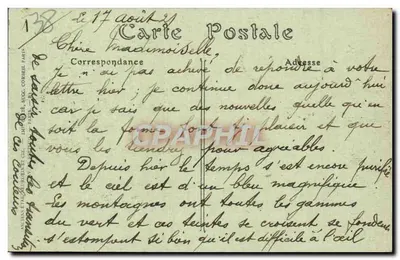 138
Le 17 Août 21
Carte Postale
Chère Mademoiselle,
Correspondance
Adresse
Je n'ai pas achevé de répondre à votre
lettre hier; je continue donc aujourd'hui
car je sais que des nouvelles quelle qu'en
soit la forme font plaisir et que
vous les tenez pour agréables.
CPAPHIL
Depuis hier le temps s'est encore purifié
et le ciel est d'un bleu magnifique
Les montagnes ont toutes les gammes
du vert et ces teintes se croisent se fondent
s'estompent si bien qu'il est difficile à l'œil
de saisir toutes les
de ces couleurs